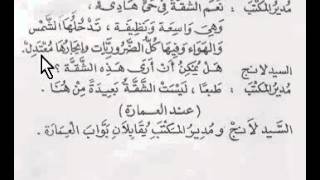 مُديرُ المكتَبِ : نَعَم الشَّقَّة فِي حَيٍّ هَادِئٍ،
وَهِيَ وَاسِعَة وَنَظِيفَة ، تَدْخُلُهَا الشَّمْس
وَالهَوَاء وَفِيهَا كُلُّ الضَّرُورِيَّات وَإِيجَارُهَا مُعْتَدِلٌ.
السيد لانج : هَلْ يُمْكِنُ أَنْ أَرَى هَذِهِ الشَّقَّة ؟
مُديرُ المكتَبِ : طَبْعًا ، لَيْسَتْ الشَّقَّةُ بَعِيدَةً مِنْ هُنَا .
(عند العمارة)
السَّيِّد لَانج وَ مُدِيرُ المَكْتَبِ يُقَابِلَانِ بَوَّابَ العِمَارَةِ .